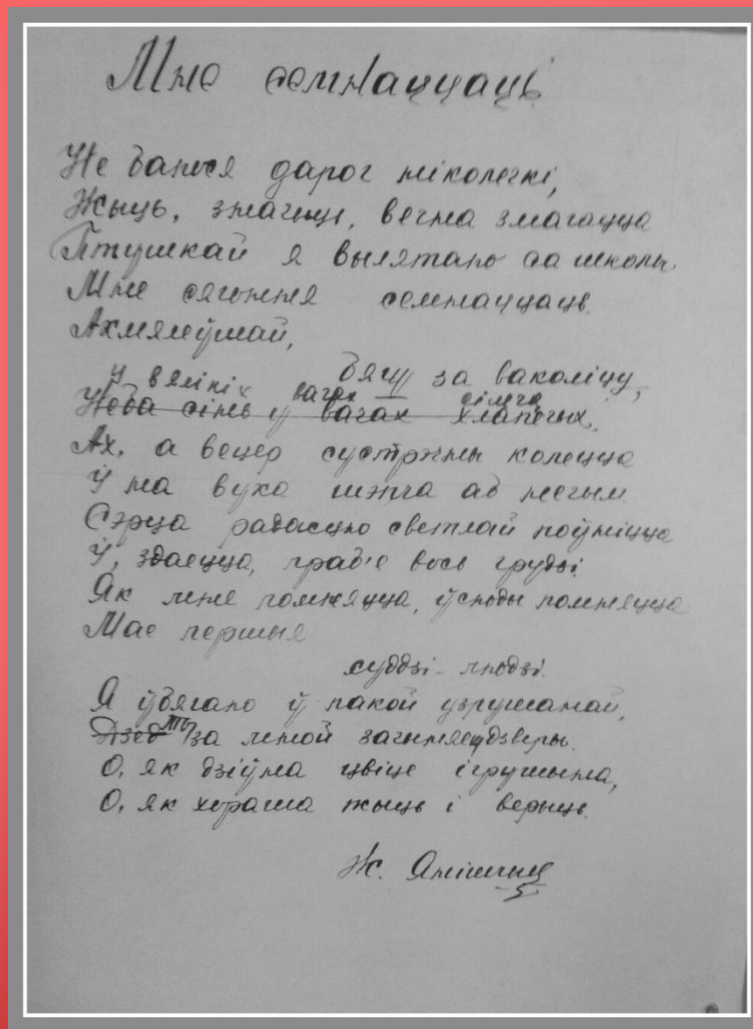 Мне семнаццаць
Не баюся дарог ніколечкі,
Жыць, значыць, вечна змагацца
Птушкай я вылятаю са школы.
Мне сягоння семнаццаць.
Ахмялеўшай,
бягу за ваколіцу,
У вялікіх вачах сініча
Неба сінь ў вачах хлапечых.
Ах, а вецер сустрэчны колецца
Ў на вуха шэпча аб нечым.
Сэрца радасцю светлай поўніцца
Ў, здаецца, праб'е вось грудзі.
Як мне помняцца, ўсюды помняцца
Мае першыя
суддзі - людзі.
Я ўбягаю ў пакой узрушанай,
Дзед за мной зачыняе дзверы.
О, як дзіўна цвіце ігрушына,
О, як хораша жыць і верыць.
Ж. Янішчыц